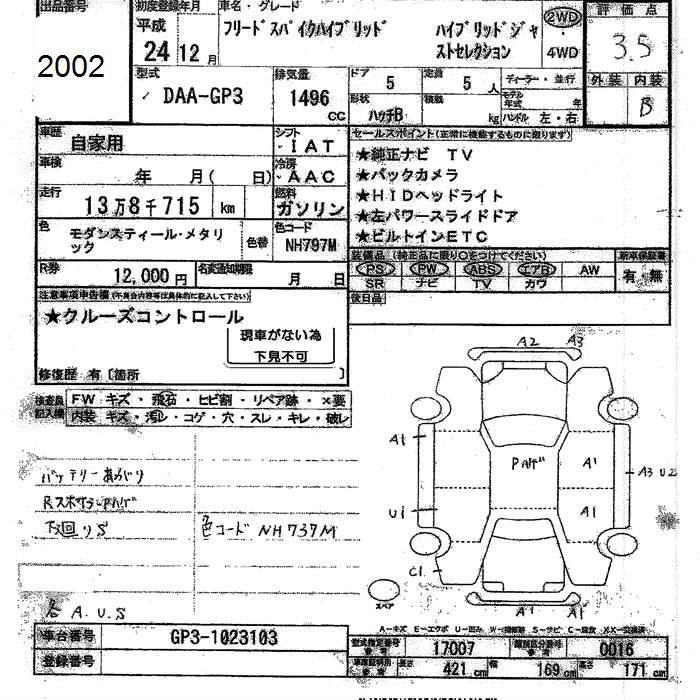 出品番号
2002
初度登録年月
平成
24 12 月
車名・グレード
フリードスパイクハイブリッド
ハイブリッドジャストセレクション
2WD
・
4WD
評価点
3.5
外装 内装
B
型式
DAA-GP3
排気量
1496
CC
ドア 5
定員 5 人
形状 ハッチB
積載 kg
ディーラー・並行
モデル年式 年
ハンドル 左・右
車歴 自家用
シフト IAT
車検 年 月( 日)
冷房 AAC
走行 13万8千715 km
燃料 ガソリン
色 モダンスティール・メタリック
色替
色コード NH797M
R券 12,000円
名変通知期限 月 日
セールスポイント(正常に機能するものに限ります)
★純正ナビ TV
★バックカメラ
★HIDヘッドライト
★左パワースライドドア
★ビルトインETC
装備品(純正品に限り○をつけてください)
PS PW ABS エアB AW
SR ナビ TV カワ
新車保証書
有・無
後日品
注意事項申告欄(不具合内容等は具体的に記入して下さい)
★クルーズコントロール
現車がない為
下見不可
修復歴 有〔箇所 〕
検査員記入欄
FW キズ・飛石・ヒビ割・リペア跡・×要
内装 キズ・汚レ・コゲ・穴・スレ・キレ・破レ
バッテリーあがり
下廻りS
色コード NH737M
各 A.U.S
A2 A3
A1
A1
A3 U2
U1
A1
C1
A1 A1
スペア
A―キズ E―エクボ U―凹み W―補修跡 S―サビ C―腐食 XX―交換済
車台番号 GP3-1023103
登録番号
型式指定番号 参考 17007
類別区分番号 参考 0016
長さ 421 cm
幅 169 cm
高さ 171 cm